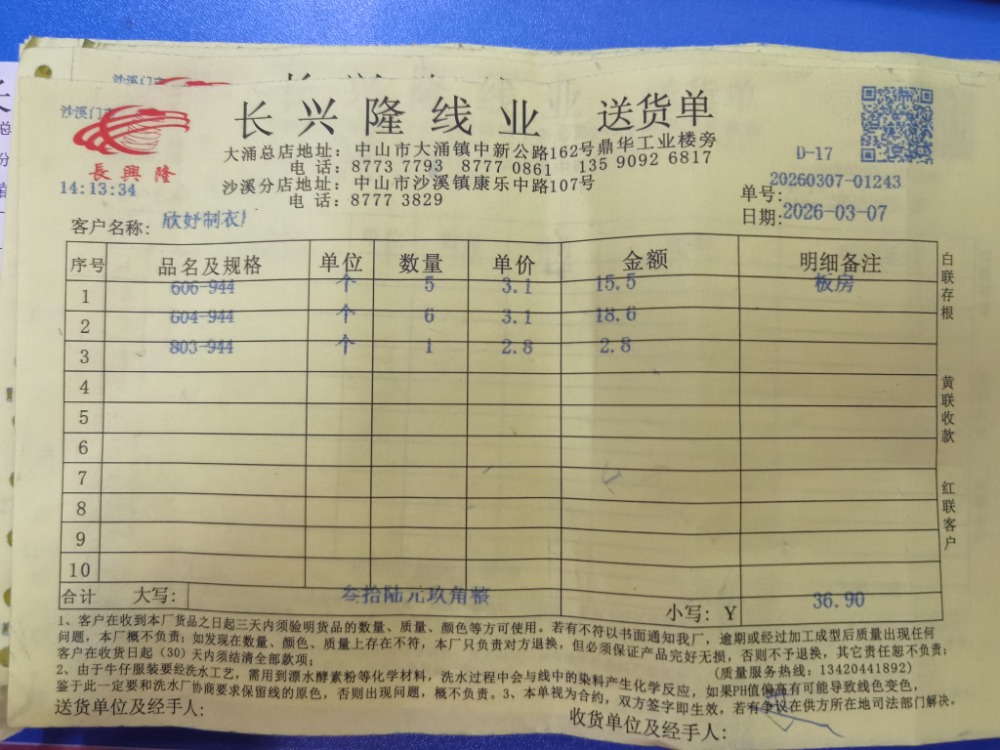 沙溪门市
沙溪门市
長興隆
长兴隆线业 送货单
大涌总店地址：中山市大涌镇中新公路162号鼎华工业楼旁
电话：8773 7793 8777 0861 135 9092 6817
沙溪分店地址：中山市沙溪镇康乐中路107号
电话：8777 3829
14:13:34
D-17
单号：20260307-01243
日期：2026-03-07
客户名称：欣妤制衣厂
序号 品名及规格 单位 数量 单价 金额 明细备注
1 606-944 个 5 3.1 15.5 板房
2 604-944 个 6 3.1 18.6
3 803-944 个 1 2.8 2.8
4
5
6
7
8
9
10
合计 大写： 叁拾陆元玖角整 小写：Y 36.90
白联存根
黄联收款
红联客户
1、客户在收到本厂货品之日起三天内须验明货品的数量、质量、颜色等方可使用。若有不符以书面通知我厂，逾期或经过加工成型后质量出现任何
问题，本厂概不负责；如发现在数量、颜色、质量上存在不符，本厂只负责对方退换，但必须保证产品完好无损，否则不予退换，其它责任恕不负责；
客户在收货日起（30）天内须结清全部款项； (质量服务热线：13420441892)
2、由于牛仔服装要经洗水工艺，需用到漂水酵素粉等化学材料，洗水过程中会与线中的染料产生化学反应，如果PH值偏高有可能导致线色变色，
鉴于此一定要和洗水厂协商要求保留线的原色，否则出现问题，概不负责。3、本单视为合约，双方签字即生效，若有争议在供方所在地司法部门解决。
送货单位及经手人：
收货单位及经手人：